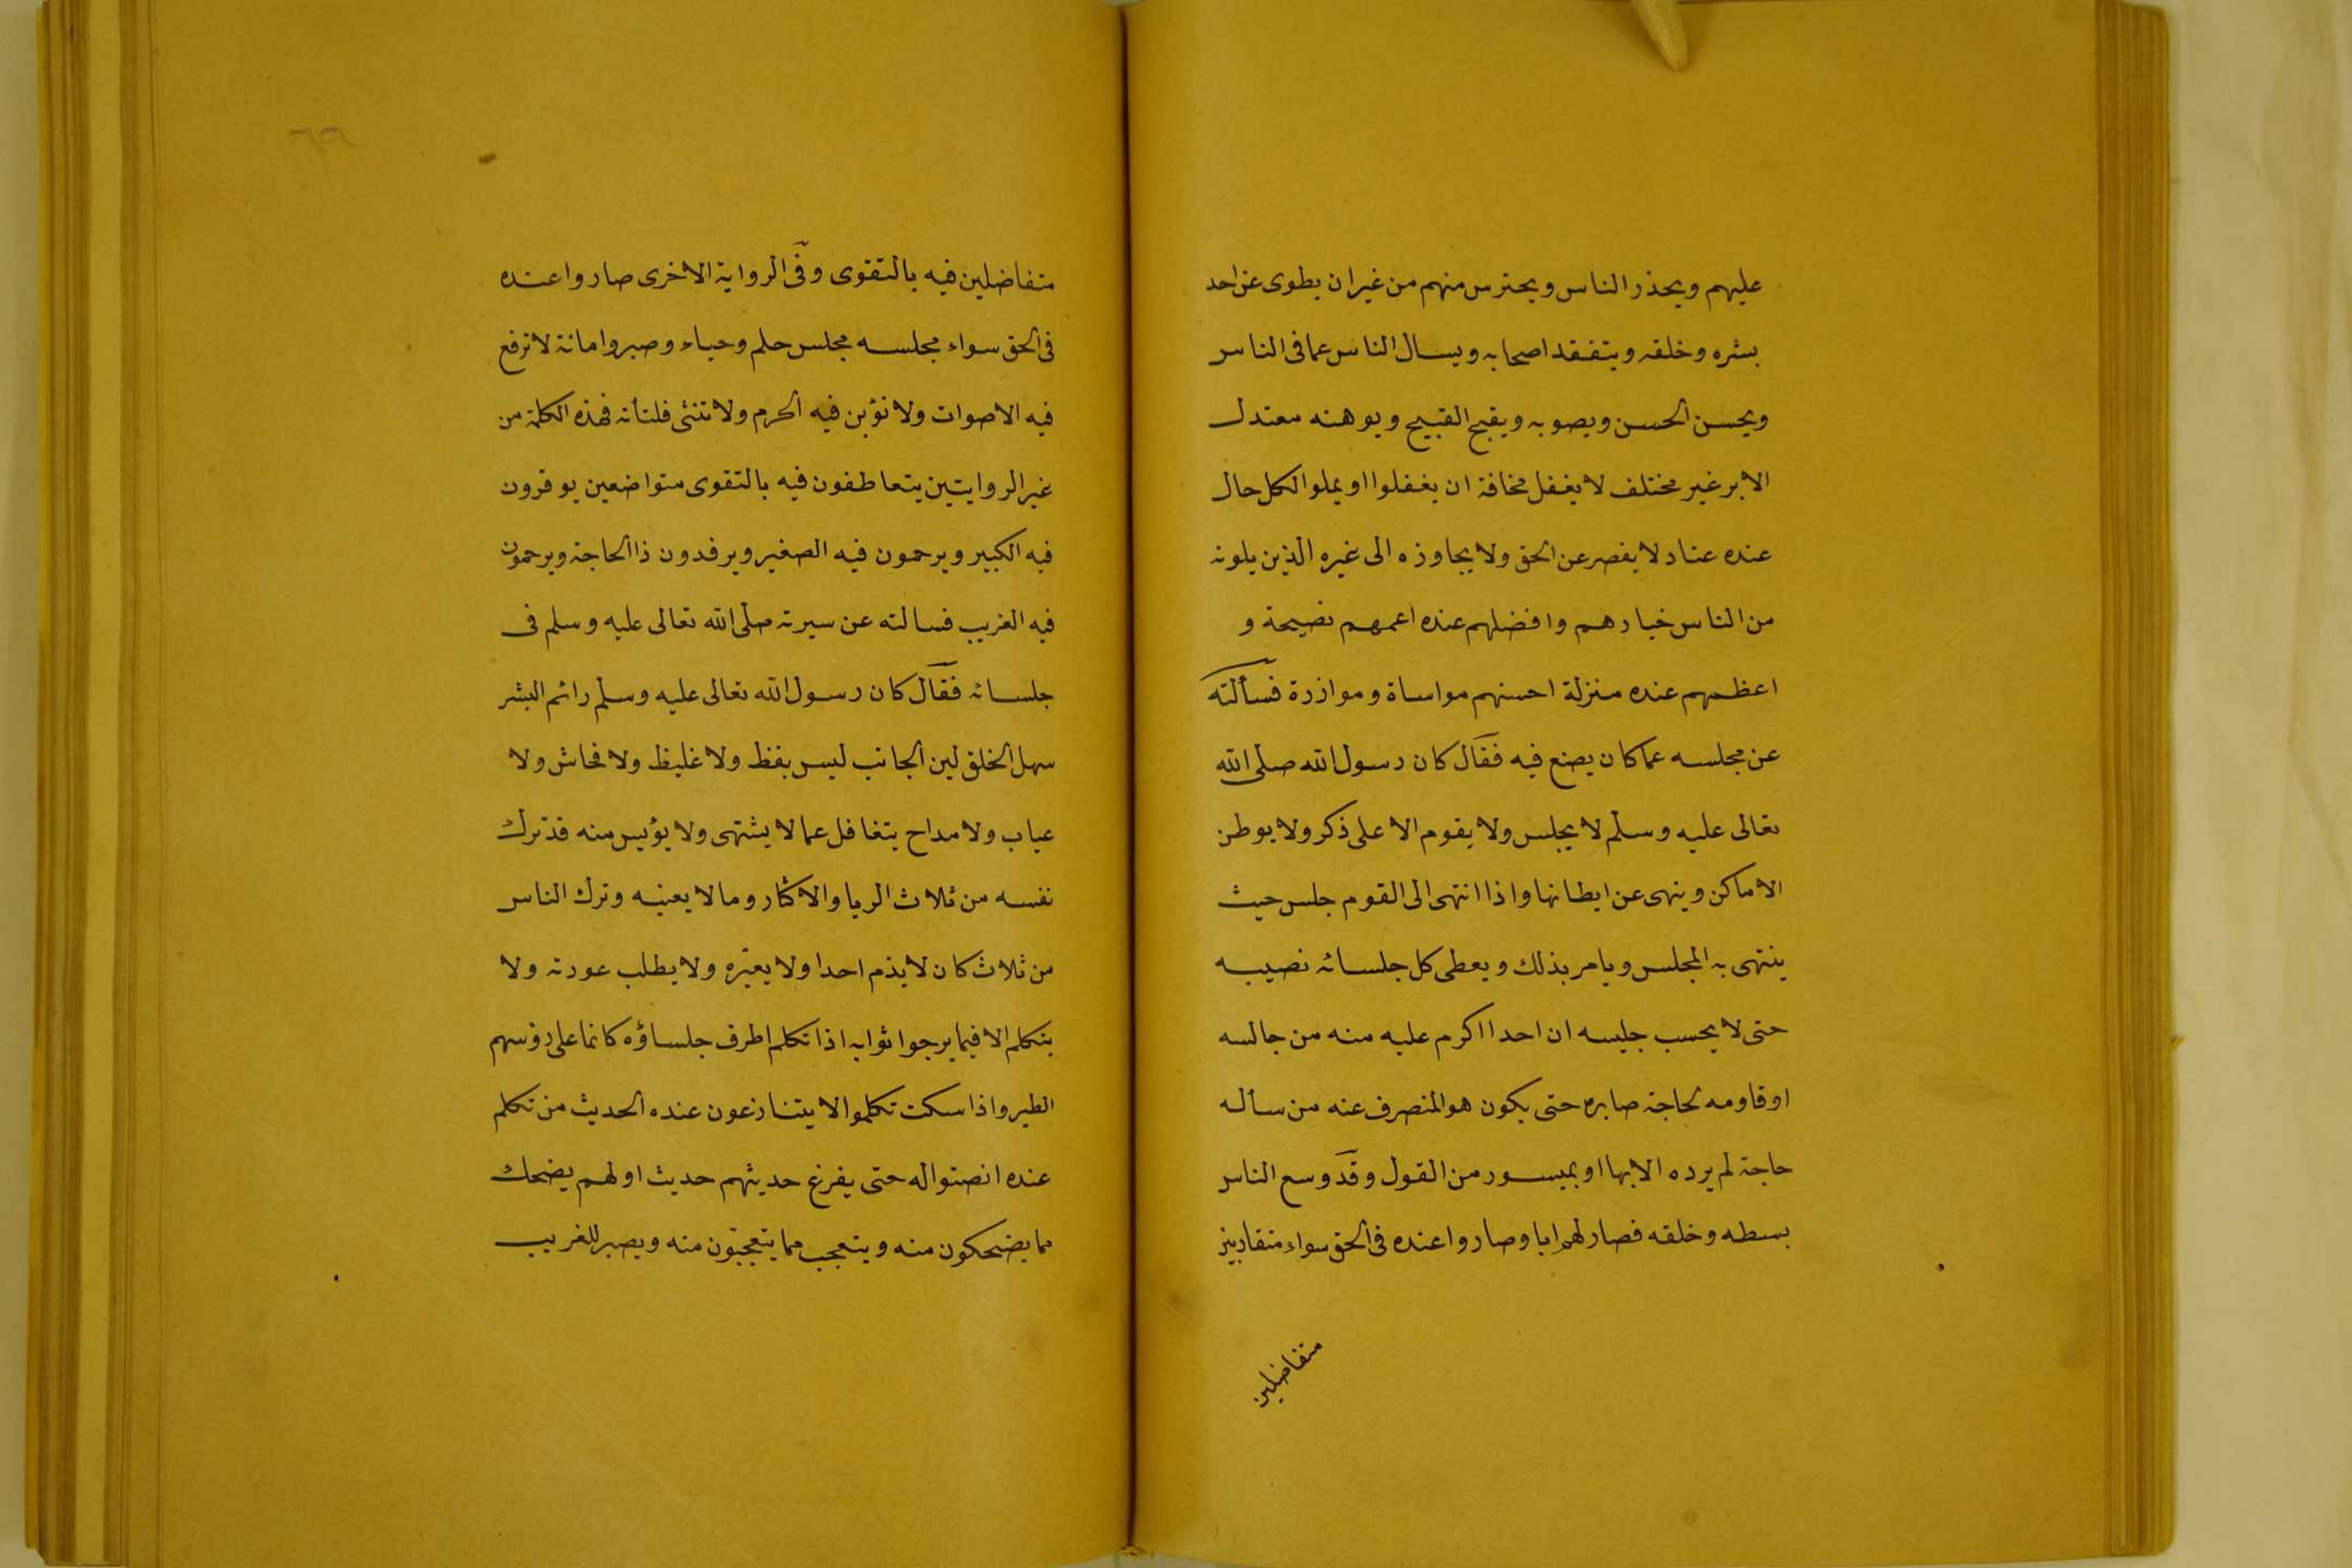 عليهم ويحذر الناس ويحترس منهم من غير ان يطوى عن احد
بشره وخلقه ويتفقد اصحابه ويسال الناس عما فى الناس
ويحسن الحسن ويصوبه ويقبح القبيح ويوهنه معتدل
الابر غير مختلف لا يغفل مخافة ان يغفلوا او يملوا لكل حال
عنده عتاد لا يقصر عن الحق ولا يجاوزه الى غيره الذين يلونه
من الناس خيارهم وافضلهم عنده اعمهم نصيحة و
اعظمهم عنده منزلة احسنهم مواساة وموازرة فسألته
عن مجلسه عما كان يصنع فيه فقال كان رسول الله صلى الله
تعالى عليه وسلم لا يجلس ولا يقوم الا على ذكر ولا يوطن
الاماكن وينهى عن ايطانها واذا انتهى الى القوم جلس حيث
ينتهى به المجلس ويامر بذلك ويعطى كل جلسائه نصيبه
حتى لا يحسب جليسه ان احدا اكرم عليه منه من جالسه
او قاومه لحاجة صابره حتى يكون هو المنصرف عنه من سأله
حاجة لم يرده الا بها او بميسور من القول وقد وسع الناس
بسطه وخلقه فصار لهم ابا وصاروا عنده فى الحق سواء متقاربين
متفاضلين
متفاضلين فيه بالتقوى وفى الرواية الاخرى صاروا عنده
فى الحق سواء مجلسه مجلس حلم وحياء وصبر وامانة لا ترفع
فيه الاصوات ولا نؤبن فيه الحرم ولا تنثى فلتأته فهذه الكلمة من
غير الروايتين يتعاطفون فيه بالتقوى متواضعين يوقرون
فيه الكبير ويرحمون فيه الصغير ويرفدون ذا الحاجة ويرحمون
فيه الغريب فسالته عن سيرته صلى الله تعالى عليه وسلم فى
جلسائه فقال كان رسول الله تعالى عليه وسلم دائم البشر
سهل الخلق لين الجانب ليس بفظ ولا غليظ ولا فحاش ولا
عياب ولا مداح يتغافل عما لا يشتهى ولا يؤيس منه قد ترك
نفسه من ثلاث الريا والاكثار وما لا يعنيه وترك الناس
من ثلاث كان لا يذم احدا ولا يعيّره ولا يطلب عورته ولا
يتكلم الا فيما يرجوا ثوابه اذا تكلم اطرف جلساؤه كانما على رؤسهم
الطير واذا سكت تكلموا لا يتنازعون عنده الحديث من تكلم
عنده انصتوا له حتى يفرغ حديثهم حديث اولهم يضحك
مما يضحكون منه ويتعجب مما يتعجبّون منه ويصبر للغريب